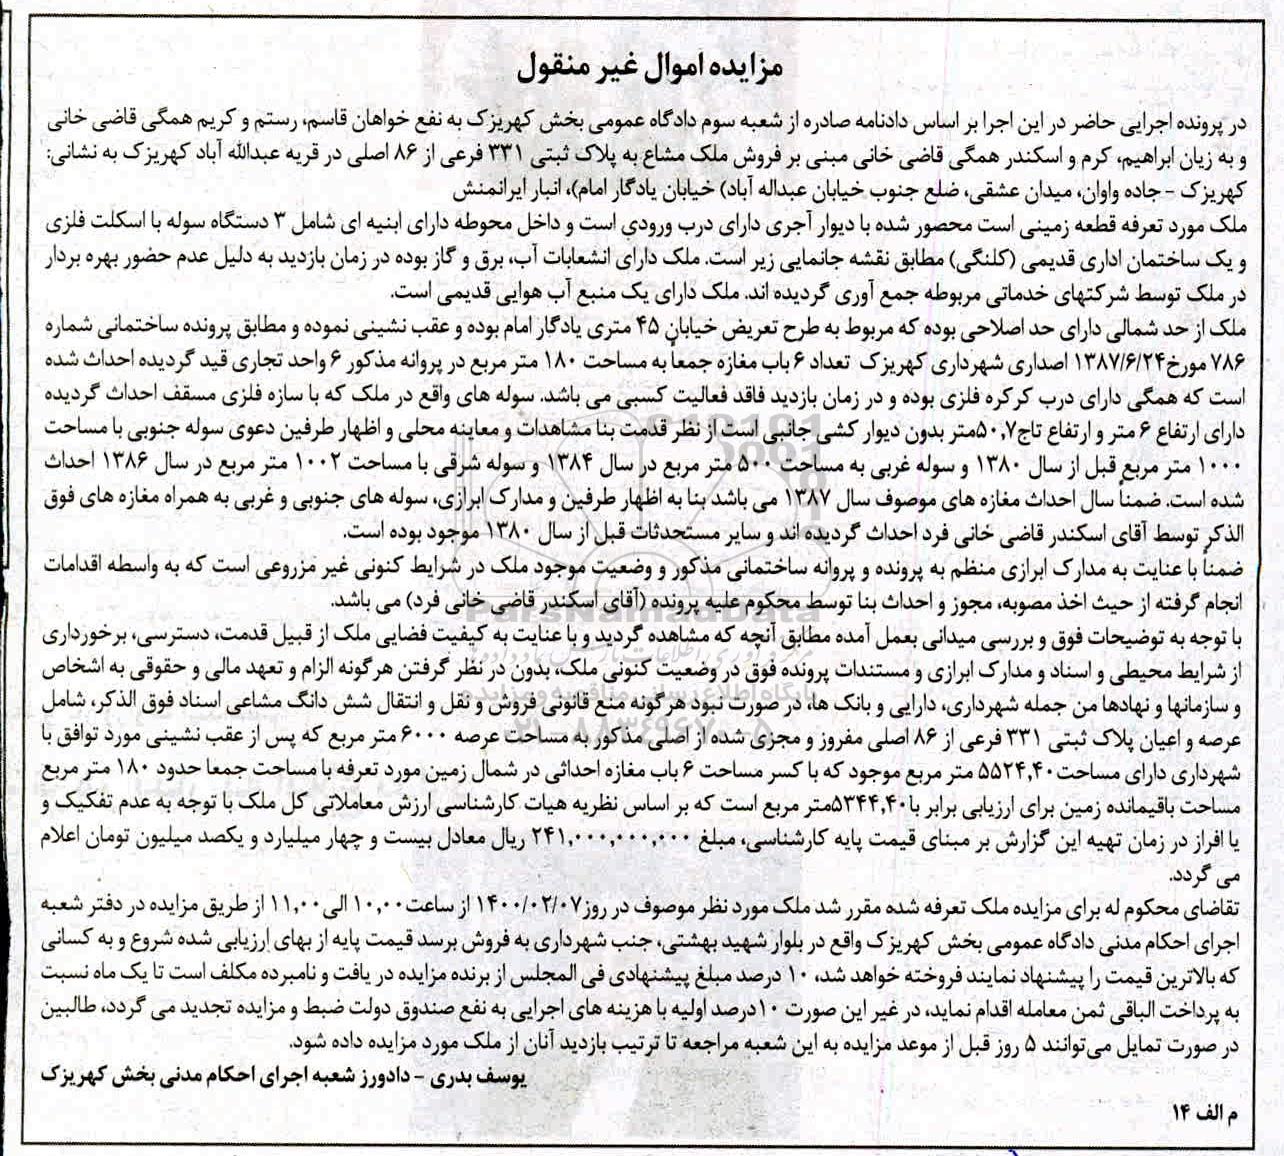 مزایده اموال غیر منقول
در پرونده اجرایی حاضر در این اجرا بر اساس دادنامه صادره از شعبه سوم دادگاه عمومی بخش کهریزک به نفع خواهان قاسم، رستم و کریم همگی قاضی خانی
و به زیان ابراهیم، کرم و اسکندر همگی قاضی خانی مبنی بر فروش ملک مشاع به پلاک ثبتی ۳۳۱ فرعی از ۸۶ اصلی در قریه عبدالله آباد کهریزک به نشانی:
کهریزک - جاده واوان، میدان عشقی، ضلع جنوب خیابان عبداله آباد) خیابان یادگار امام)، انبار ایرانمنش
ملک مورد تعرفه قطعه زمینی است محصور شده با دیوار آجری دارای درب ورودی است و داخل محوطه دارای ابنیه ای شامل ۳ دستگاه سوله با اسکلت فلزی
و یک ساختمان اداری قدیمی (کلنگی) مطابق نقشه جانمایی زیر است. ملک دارای انشعابات آب، برق و گاز بوده در زمان بازدید به دلیل عدم حضور بهره بردار
در ملک توسط شرکتهای خدماتی مربوطه جمع آوری گردیده اند. ملک دارای یک منبع آب هوایی قدیمی است.
ملک از حد شمالی دارای حد اصلاحی بوده که مربوط به طرح تعریض خیابان ۴۵ متری یادگار امام بوده و عقب نشینی نموده و مطابق پرونده ساختمانی شماره
۷۸۶ مورخ۱۳۸۷/۶/۲۴ اصداری شهرداری کهریزک تعداد ۶ باب مغازه جمعاً به مساحت ۱۸۰ متر مربع در پروانه مذکور ۶ واحد تجاری قید گردیده احداث شده
است که همگی دارای درب کرکره فلزی بوده و در زمان بازدید فاقد فعالیت کسبی می باشد. سوله های واقع در ملک که با سازه فلزی مسقف احداث گردیده
دارای ارتفاع ۶ متر و ارتفاع تاج۵۰,۷متر بدون دیوار کشی جانبی است از نظر قدمت بنا مشاهدات و معاینه محلی و اظهار طرفین دعوی سوله جنوبی با مساحت
۱۰۰۰ متر مربع قبل از سال ۱۳۸۰ و سوله غربی به مساحت ۵۰۰ متر مربع در سال ۱۳۸۴ و سوله شرقی با مساحت ۱۰۰۲ متر مربع در سال ۱۳۸۶ احداث
شده است. ضمناً سال احداث مغازه های موصوف سال ۱۳۸۷ می باشد بنا به اظهار طرفین و مدارک ابرازی، سوله های جنوبی و غربی به همراه مغازه های فوق
الذکر توسط آقای اسکندر قاضی خانی فرد احداث گردیده اند و سایر مستحدثات قبل از سال ۱۳۸۰ موجود بوده است.
ضمناً با عنایت به مدارک ابرازی منظم به پرونده و پروانه ساختمانی مذکور و وضعیت موجود ملک در شرایط کنونی غیر مزروعی است که به واسطه اقدامات
انجام گرفته از حیث اخذ مصوبه، مجوز و احداث بنا توسط محکوم علیه پرونده (آقای اسکندر قاضی خانی فرد) می باشد.
با توجه به توضیحات فوق و بررسی میدانی بعمل آمده مطابق آنچه که مشاهده گردید و با عنایت به کیفیت فضایی ملک از قبیل قدمت، دسترسی، برخورداری
از شرایط محیطی و اسناد و مدارک ابرازی و مستندات پرونده فوق در وضعیت کنونی ملک، بدون در نظر گرفتن هرگونه الزام و تعهد مالی و حقوقی به اشخاص
و سازمانها و نهادها من جمله شهرداری، دارایی و بانک ها، در صورت نبود هرگونه منع قانونی فروش و نقل و انتقال شش دانگ مشاعی اسناد فوق الذکر، شامل
عرصه و اعیان پلاک ثبتی ۳۳۱ فرعی از ۸۶ اصلی مفروز و مجزی شده از اصلی مذکور به مساحت عرصه ۶۰۰۰ متر مربع که پس از عقب نشینی مورد توافق با
شهرداری دارای مساحت۵۵۲۴,۴۰ متر مربع موجود که با کسر مساحت ۶ باب مغازه احداثی در شمال زمین مورد تعرفه با مساحت جمعا حدود ۱۸۰ متر مربع
مساحت باقیمانده زمین برای ارزیابی برابر با۵۳۴۴,۴۰متر مربع است که بر اساس نظریه هیات کارشناسی ارزش معاملاتی کل ملک با توجه به عدم تفکیک و
یا افراز در زمان تهیه این گزارش بر مبنای قیمت پایه کارشناسی، مبلغ ۲۴۱,۰۰۰,۰۰۰,۰۰۰ ریال معادل بیست و چهار میلیارد و یکصد میلیون تومان اعلام
می گردد.
تقاضای محکوم له برای مزایده ملک تعرفه شده مقرر شد ملک مورد نظر موصوف در روز۱۴۰۰/۰۲/۰۷ از ساعت۱۰,۰۰ الی۱۱,۰۰ از طریق مزایده در دفتر شعبه
اجرای احکام مدنی دادگاه عمومی بخش کهریزک واقع در بلوار شهید بهشتی، جنب شهرداری به فروش برسد قیمت پایه از بهای ارزیابی شده شروع و به کسانی
که بالاترین قیمت را پیشنهاد نمایند فروخته خواهد شد، ۱۰ درصد مبلغ پیشنهادی فی المجلس از برنده مزایده در یافت و نامبرده مکلف است تا یک ماه نسبت
به پرداخت الباقی ثمن معامله اقدام نماید، در غیر این صورت ۱۰درصد اولیه با هزینه های اجرایی به نفع صندوق دولت ضبط و مزایده تجدید می گردد، طالبین
در صورت تمایل می‌توانند ۵ روز قبل از موعد مزایده به این شعبه مراجعه تا ترتیب بازدید آنان از ملک مورد مزایده داده شود.
یوسف بدری - دادورز شعبه اجرای احکام مدنی بخش کهریزک
م الف ۱۴
ParsNamadData
پایگاه اطلاع رسانی مناقصه و مزایده